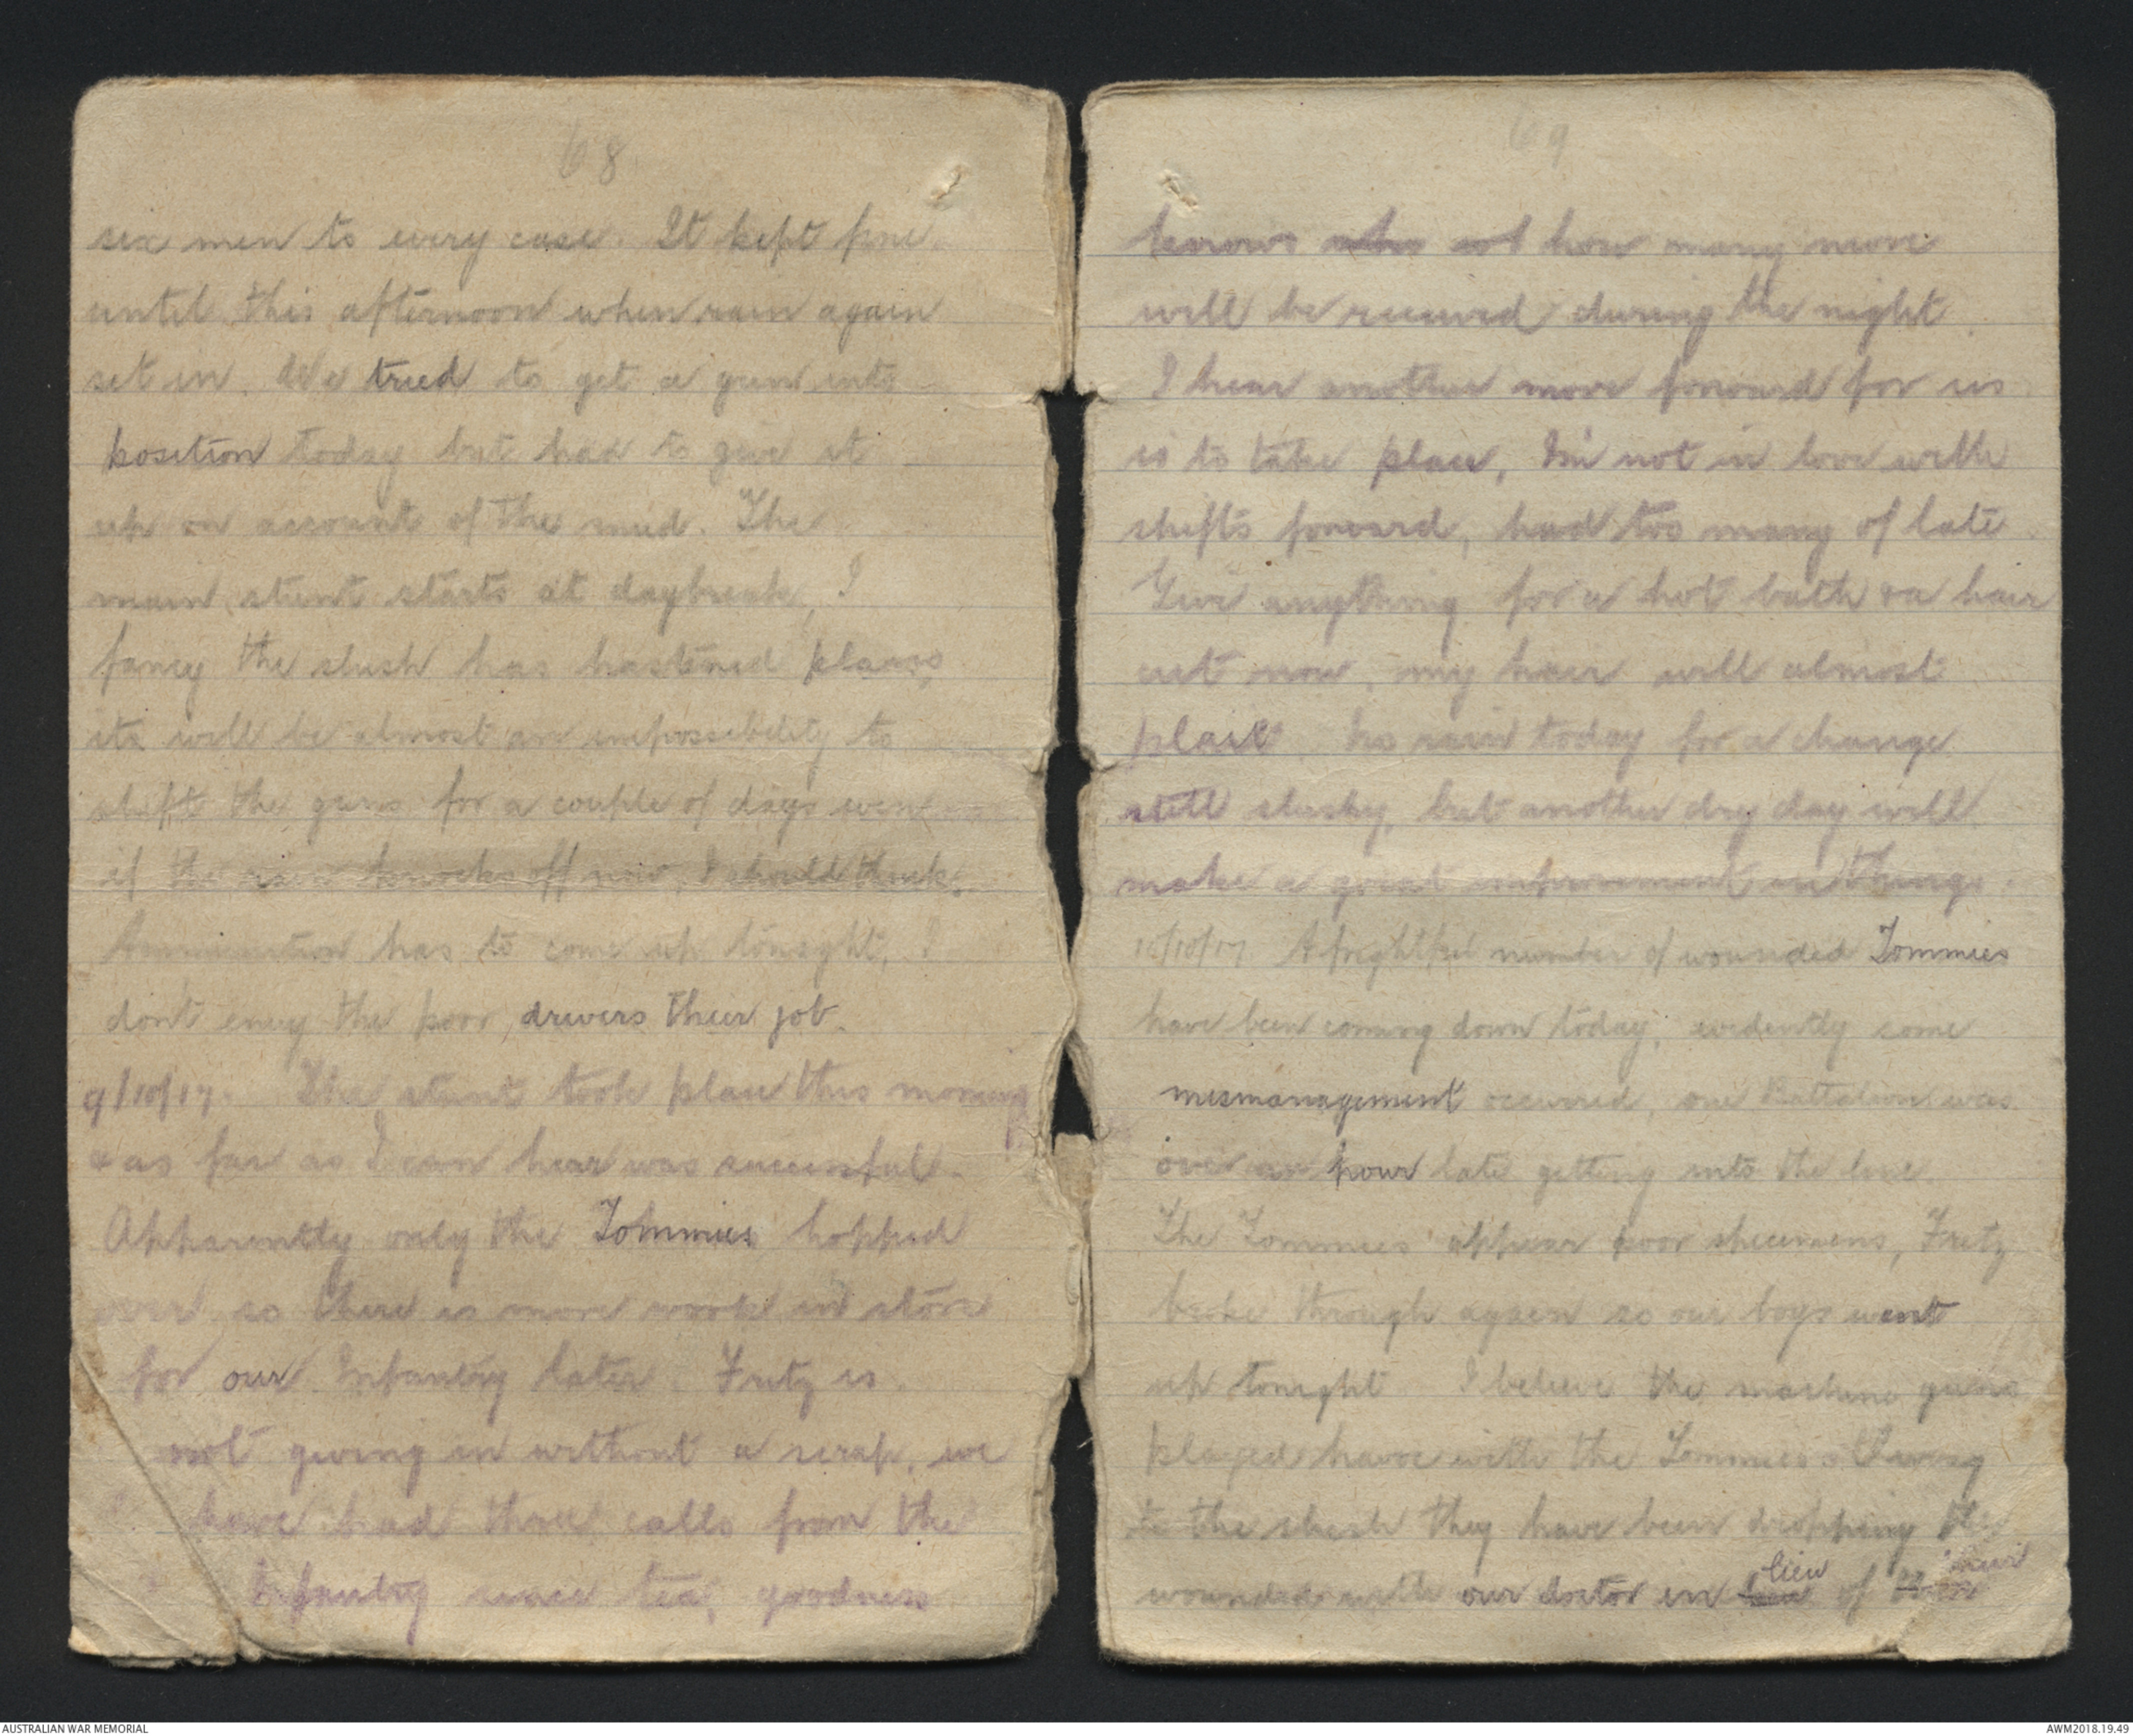 68
six men to every case. It kept fine
until this afternoon when rain again
set in. We tried to get a gun into
position today but had to give it
up on account of the mud. The
main stunt starts at daybreak, I
fancy the slush has hastened plans,
its will be almost an impossibility to
shift the guns for a couple of days even
if the rain knocks off now, I should think.
Ammunition has to come up tonight, I
don't envy the poor drivers their job.
9/10/17. The stunt took place this morning
& as far as I can hear was successful.
Apparently only the Tommies hopped
over, so there is more work in store
for our Infantry later. Fritz is
not giving in without a scrap, we
have had three calls from the
Infantry since tea, goodness
69
knows how many more
will be received during the night.
I hear another move forward for us
is to take place, I'm not in love with
shifts forward, had too many of late.
Give anything for a hot bath & a hair
cut now, my hair will almost
plait. No rain today for a change
still slushy, but another dry day will
make a great improvement in things.
10/10/17. A frightful number of wounded Tommies
have been coming down today, evidently some
mismanagement occurred, one Battalion was
over an hour late getting into the line.
The Tommies appear poor specimens, Fritz
broke through again so our boys went
up tonight. I believe the machine guns
played havoc with the Tommies. Owing
to the slush they have been dropping the
wounded with our doctor in lieu of
AUSTRALIAN WAR MEMORIAL
AWM2018.19.49